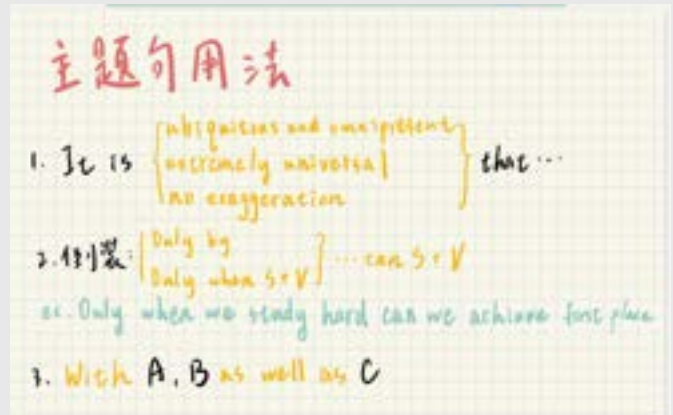 主題句用法
ubiquitous and omnipresent
1. It is extremely universal that...
no exaggeration
Only by
2. 倒裝: Only when S+V ... can S+V
ex. Only when we study hard can we achieve first place
3. With A, B as well as C